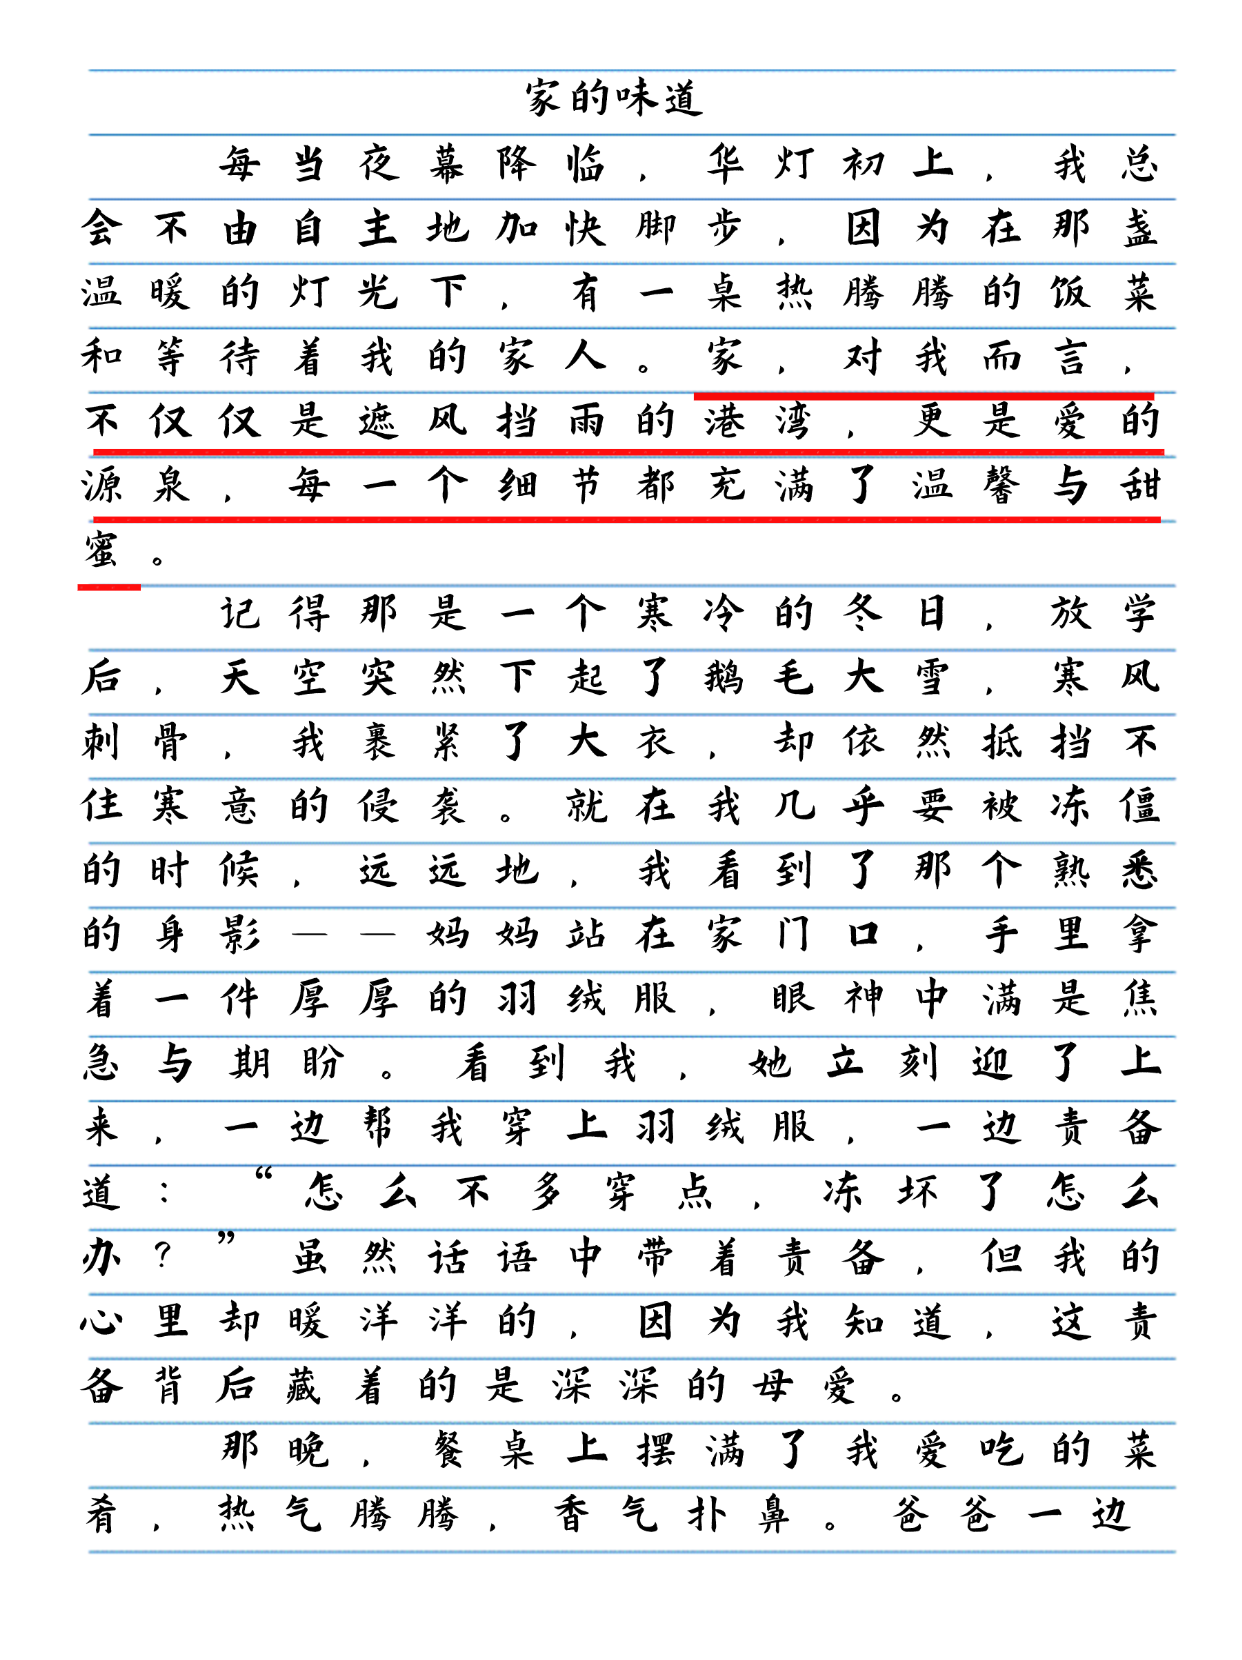 家的味道
每当夜幕降临，华灯初上，我总
会不由自主地加快脚步，因为在那盏
温暖的灯光下，有一桌热腾腾的饭菜
和等待着我的家人。家，对我而言，
不仅仅是遮风挡雨的港湾，更是爱的
源泉，每一个细节都充满了温馨与甜
蜜。
记得那是一个寒冷的冬日，放学
后，天空突然下起了鹅毛大雪，寒风
刺骨，我裹紧了大衣，却依然抵挡不
住寒意的侵袭。就在我几乎要被冻僵
的时候，远远地，我看到了那个熟悉
的身影——妈妈站在家门口，手里拿
着一件厚厚的羽绒服，眼神中满是焦
急与期盼。看到我，她立刻迎了上
来，一边帮我穿上羽绒服，一边责备
道：“怎么不多穿点，冻坏了怎么
办？”虽然话语中带着责备，但我的
心里却暖洋洋的，因为我知道，这责
备背后藏着的是深深的母爱。
那晚，餐桌上摆满了我爱吃的菜
肴，热气腾腾，香气扑鼻。爸爸一边